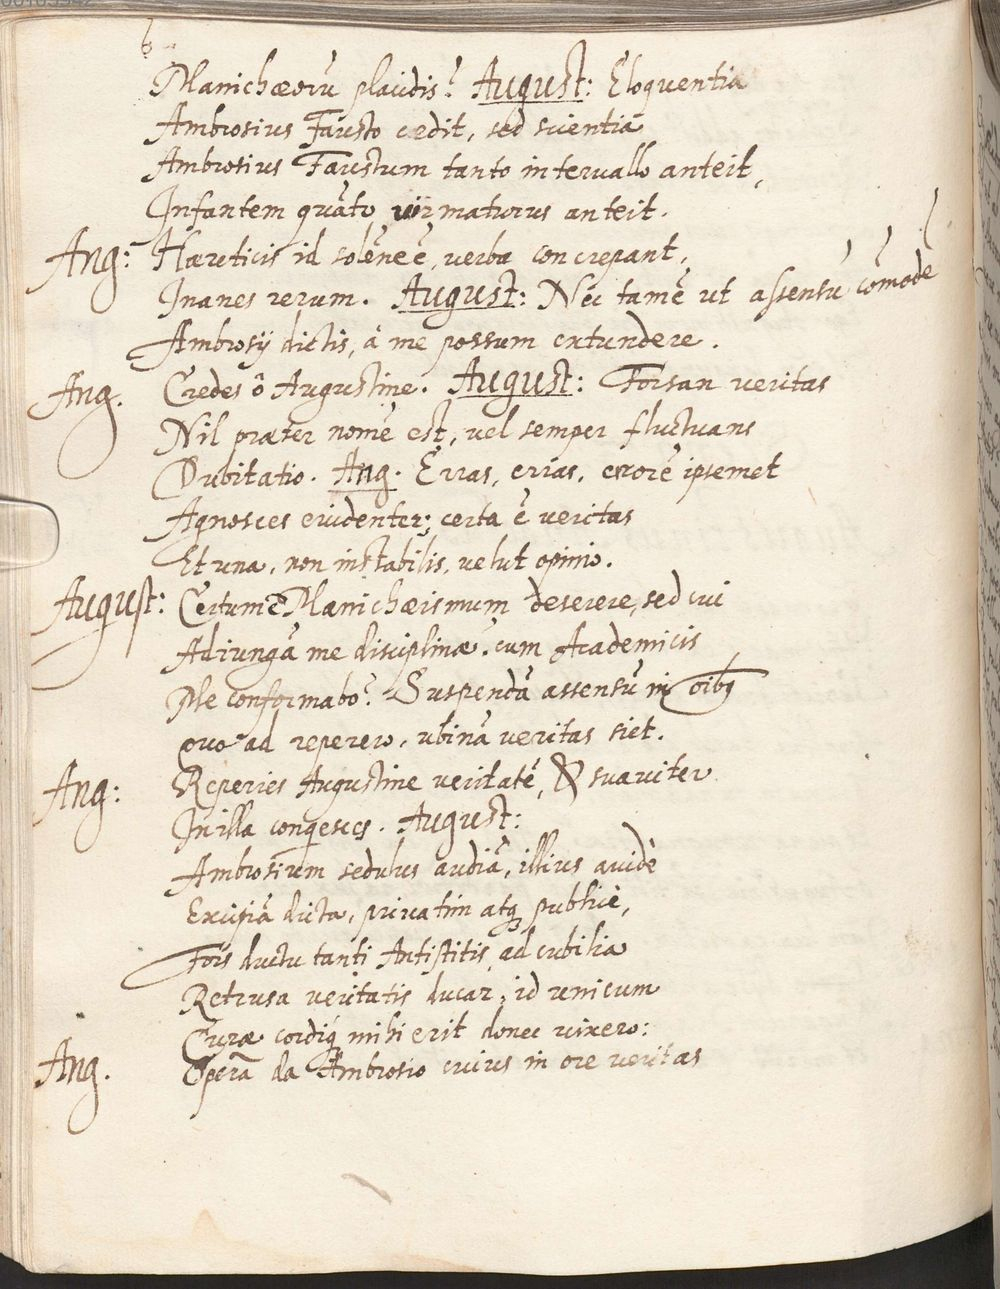 Manichæorũ plaudis? August: Eloquentia
Ambrosius Fausto cedit, sed scientiâ
Ambrosius Faustum tanto intervallo anteit,
Infantem quãto vir maturus anteit.
Ang: Hæreticis id solẽne ẽ, verba concrepant,
Inanes rerum. August: Nec tamẽ ut assensũ cõmodẽ
Ambrosij dictis, â me possum extundere.
Ang. Credes ô Augustine. August: Forsan veritas
Nil præter nomẽ est, vel semper fluctuans
Dubitatio. Ang. Erras, erras, errorẽ ipsemet
Agnosces evidenter; certa ẽ veritas
Et una, non instabilis, velut opinio.
August: Certum ẽ Manichæismum deserere, sed cui
Adiungã me disciplinæ? cum Academicis
Me conformabo? Suspendã assensũ in oib9
quo ad reperero, ubinã veritas siet.
Ang: Reperies Augustine veritatẽ, & suaviter
In illa conqiesces. August:
Ambrosium sedulus audiã, illius avidè
Excipiã dicta, privatim atq publicè,
Fors ductu tanti Antistitis, ad cubilia
Retrusa veritatis ducar, id unicum
Curæ cordiq mihi erit donec vixero:
Ang. Operã da Ambrosio cuius in ore veritas